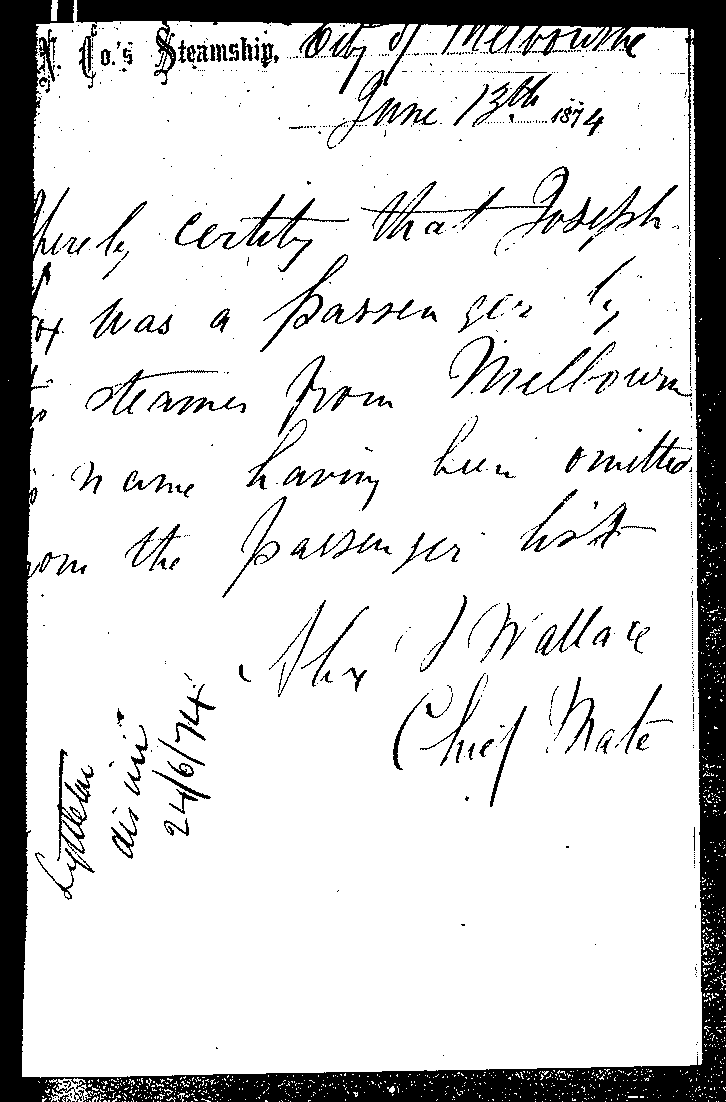 N. Co.'s Steamship, City of Melbourne
June 13th 1874
hereby certify that Joseph
was a passenger by
steamer from Melbourne
name having been omitted
from the passenger list
Alex J Wallace
Chief Mate
24/6/74